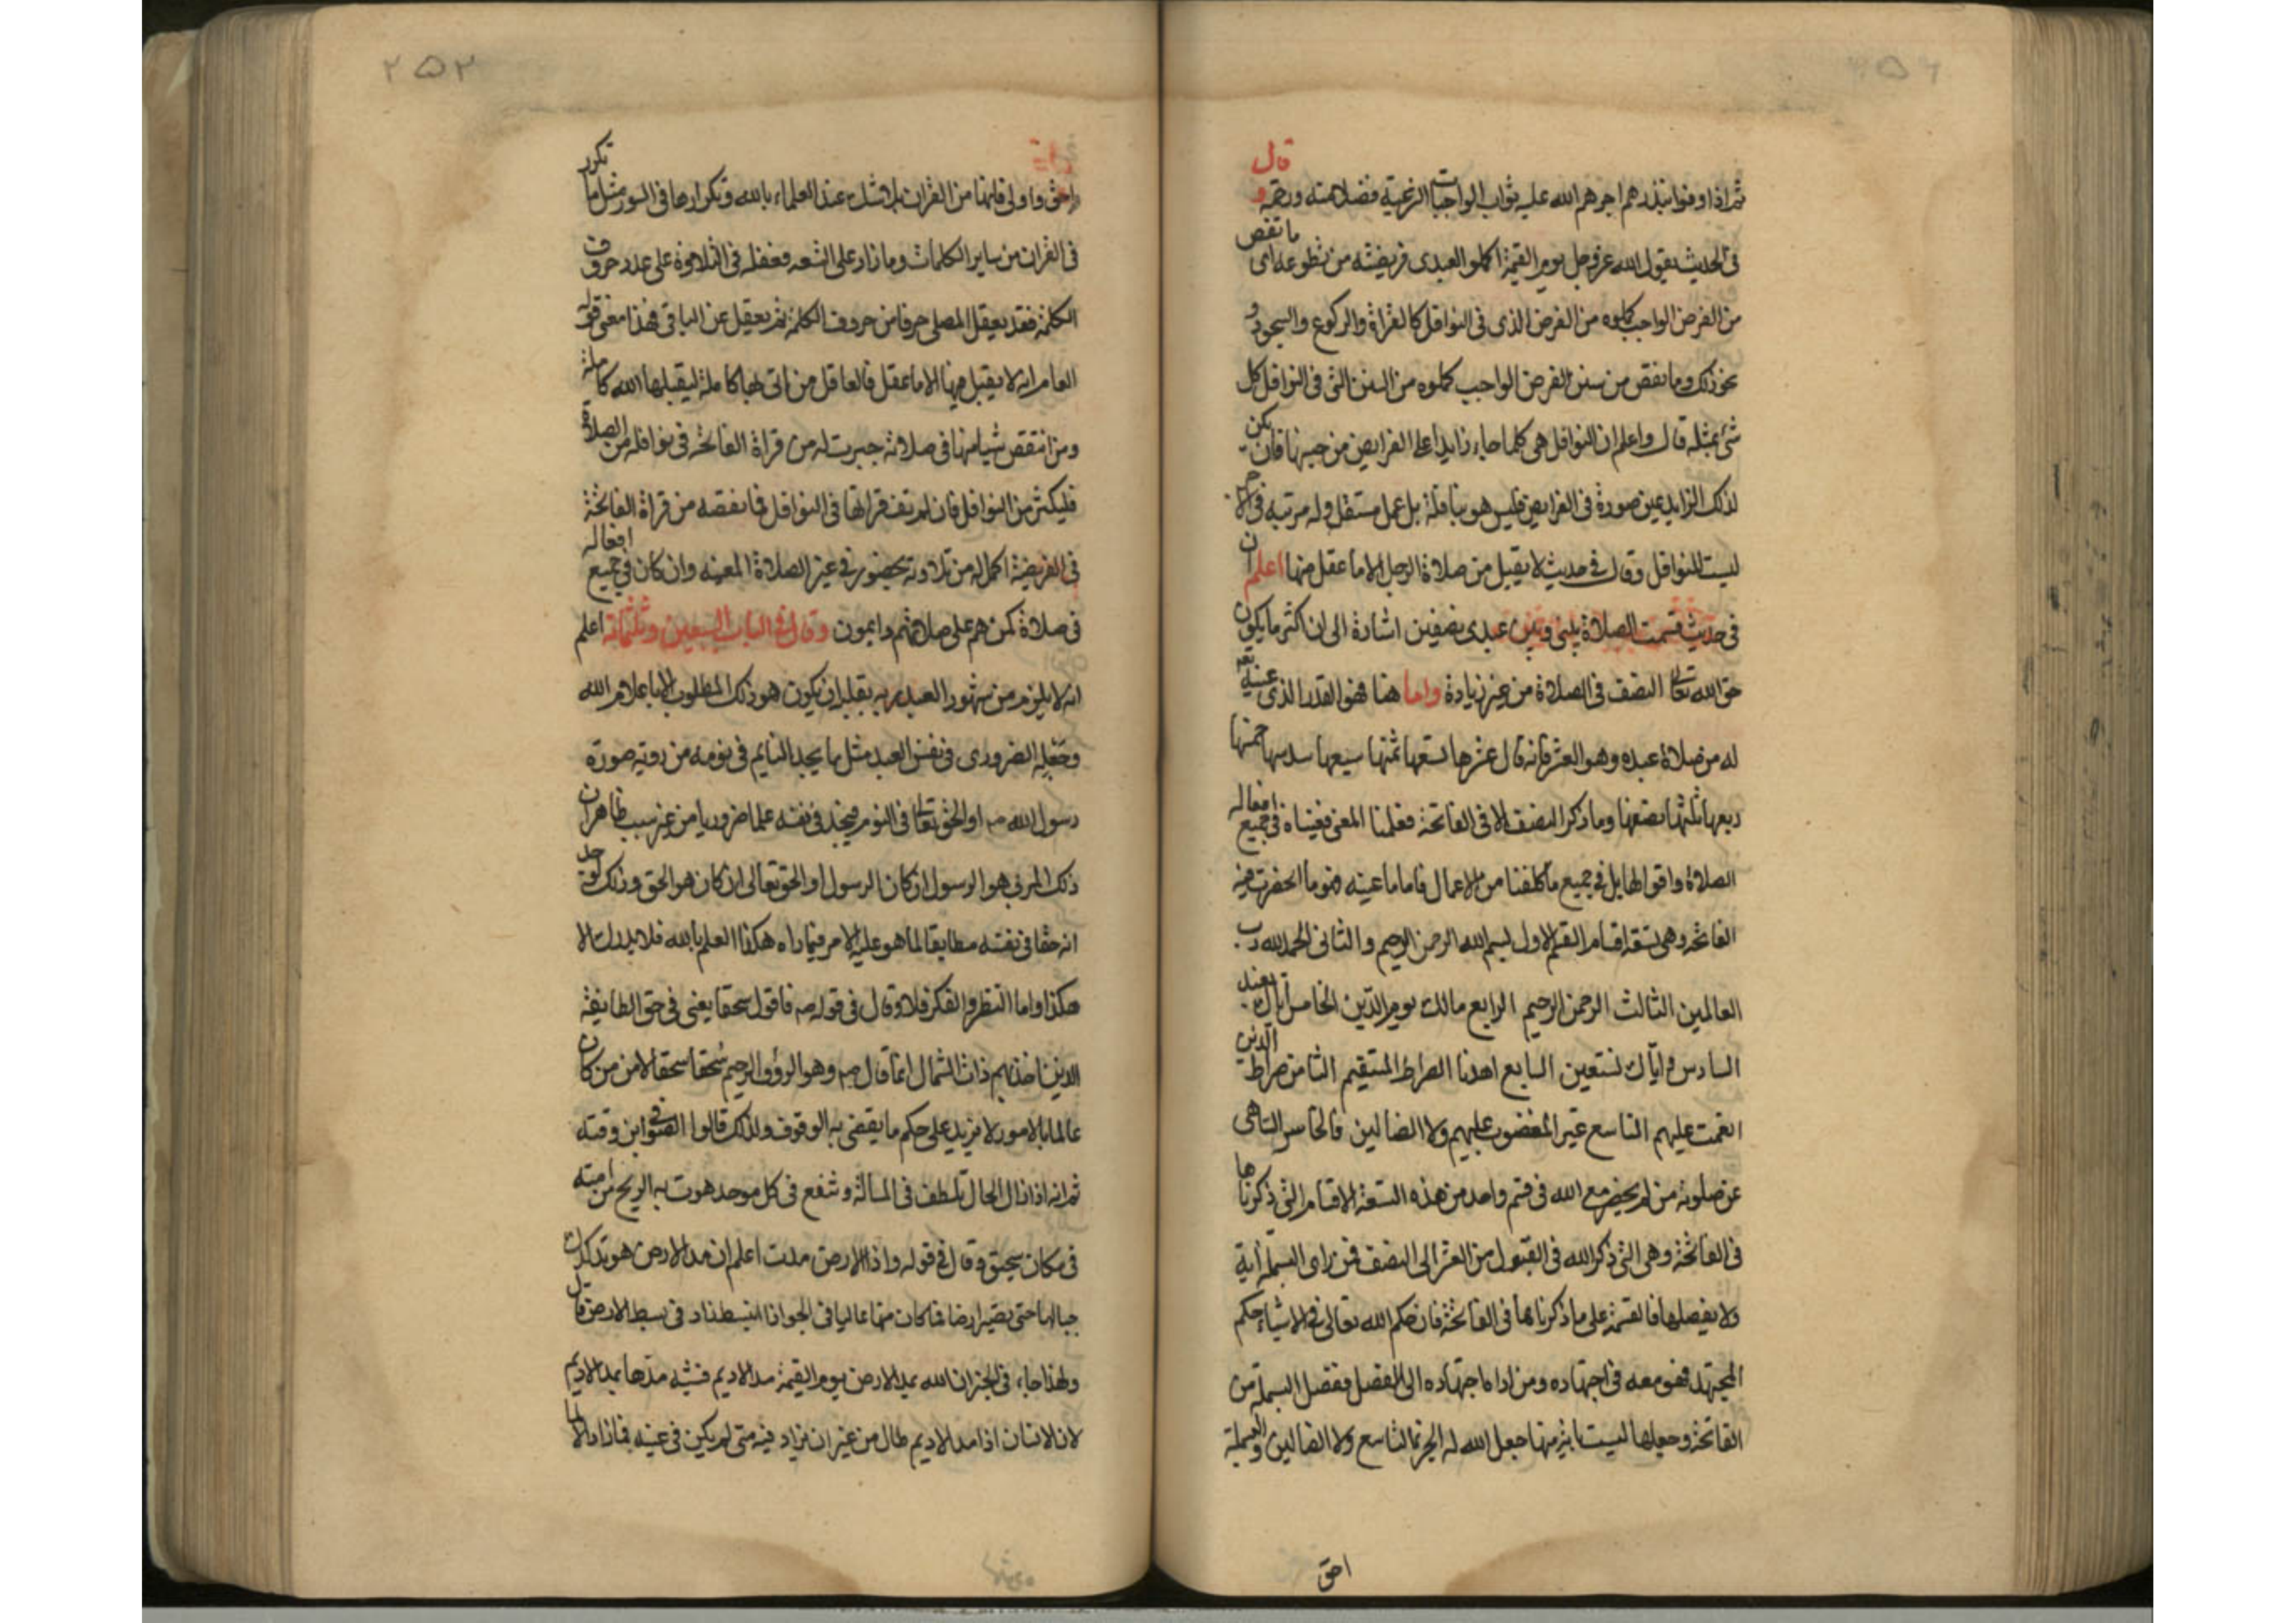 قال
ثم اذا وفوا بنذرهم اجرهم الله عليه ثواب الواجبات الشرعية فضلا منه ورحمة و
في الحديث يقول الله عز وجل يوم القيمة اكملوا لعبدي فريضته من تطوعه اي ما نقص
من الفرض الواجب كملوه من الفرض الذي في النوافل كالقراة والركوع والسجود و
نحو ذلك وما نقص من سنن الفرض الواجب كملوه من السنن التي في النوافل كل
شئ بمثله قال واعلم ان النوافل هي كلما جاء زايدا على الفرايض من جنسها فان لم يكن
لذلك الزايد عين صورة في الفرايض فليس هو بنافلة بل عمل مستقل وله مرتبة في الاجر
ليست للنوافل وقال في حديث لا يقبل من صلاة الرجل الا ما عقل منها اعلم ان
في حديث قسمت الصلاة بيني وبين عبدي نصفين اشارة الى ان اكثر ما يكون
حق الله تعالى النصف في الصلاة من غير زيادة واما هنا فهو القدر الذي عينه
له من صلاة عبده وهو العشر فانه قال عشرها تسعها ثمنها سبعها سدسها خمسها
ربعها ثلثها نصفها وما ذكر النصف الا في الفاتحة فعلمنا المعنى فعيناه في جميع افعال
الصلاة واقوالها بل في جميع ما كلفنا من الاعمال فاما ما عينه فهو ما انحصرت فيه
الفاتحة وهي تسعة اقسام القسم الاول بسم الله الرحمن الرحيم والثاني الحمد لله رب
العالمين الثالث الرحمن الرحيم الرابع مالك يوم الدين الخامس اياك نعبد
السادس واياك نستعين السابع اهدنا الصراط المستقيم الثامن صراط الذين
انعمت عليهم التاسع غير المغضوب عليهم ولا الضالين فالخاسر الساهي
عن صلوته من لم يحضر مع الله في قسم واحد من هذه التسعة الاقسام التي ذكرناها
في الفاتحة وهي التي ذكر الله في القبول من العشر الى النصف فمن راى البسملة اية
ولا يفصلها فالقسمة على ما ذكرناها في الفاتحة فان حكم الله تعالى في الاشياء حكم
المجتهد فهو معه في اجتهاده ومن اداه اجتهاده الى الفصل ففصل البسملة من
الفاتحة وجعلها ليست باية منها جعل الله له الجزء التاسع ولا الضالين والبسملة
احق
احق واولى فانها من القران بلا شك عند العلماء بالله وتكرارها في السور مثل ما تكرر
في القران من ساير الكلمات وما زاد على التسعه فعقله في التلاوة على عدد حروف
الكلمة فقد يعقل المصلي حرفا من حروف الكلمة ثم يعقل عن الباقي فهذا معنى قوله
العام انه لا يقبل منها الا ما عقل فالعاقل من اتى بها كاملة ليقبلها الله كاملة
ومن انتقص شيا منها في صلاته جبرت له من قراة الفاتحة في نوافله من الصلاة
فليكثر من النوافل فان لم تف قراتها في النوافل فما نقصه من قراة الفاتحة
في الفريضة اكمل له من تلاوته بحضور في غير الصلاة المعينه وان كان في جميع افعاله
في صلاة كمن هم على صلاتهم دايمون وقال في الباب السبعين وثلثمائة اعلم
انه لا يلزم من شهود العبد ربه بقلبه ان يكون هو ذلك المطلوب الا باعلام الله
وجعله الضروري في نفس العبد مثل ما يجد النايم في نومه من روية صورة
رسول الله صم او الحق تعالى في النوم فيجد في نفسه علما ضروريا من غير سبب ظاهر ان
ذلك المرئي هو الرسول ان كان الرسول او الحق تعالى ان كان هو الحق وذلك لوجد
انه حقا في نفسه مطابقا لما هو عليه الامر فيما راه هكذا العلم بالله فلا يدرك الا
هكذا واما النظر والفكر فلا وقال في قوله صم فاقول سحقا يعني في حق الطايفة
الذين اخذ بهم ذات الشمال انما قال صم وهو الرؤف الرحيم سحقا سحقا لان من كان
عالما بالامور لا يزيد على حكم ما يقضي به الوقوف ولذلك قالوا الصوفي ابن وقته
ثم انه اذا زال الحال تلطف في المسألة وشفع في كل موحد هوت به الريح من امته
في مكان سحيق وقال في قوله واذا الارض مدت اعلم ان مد الارض هو تدكدك
جبالها حتى تصير ارضا فما كان منها عاليا في الجو اذا انبسط زاد في بسط الارض قال
ولهذا جاء في الخبر ان الله يمد الارض يوم القيمة مد الاديم فشبه مدها بمد الاديم
لان الانسان اذا مد الاديم طال من غير ان يزاد فيه شئ لم يكن في عينه فما زاد الا